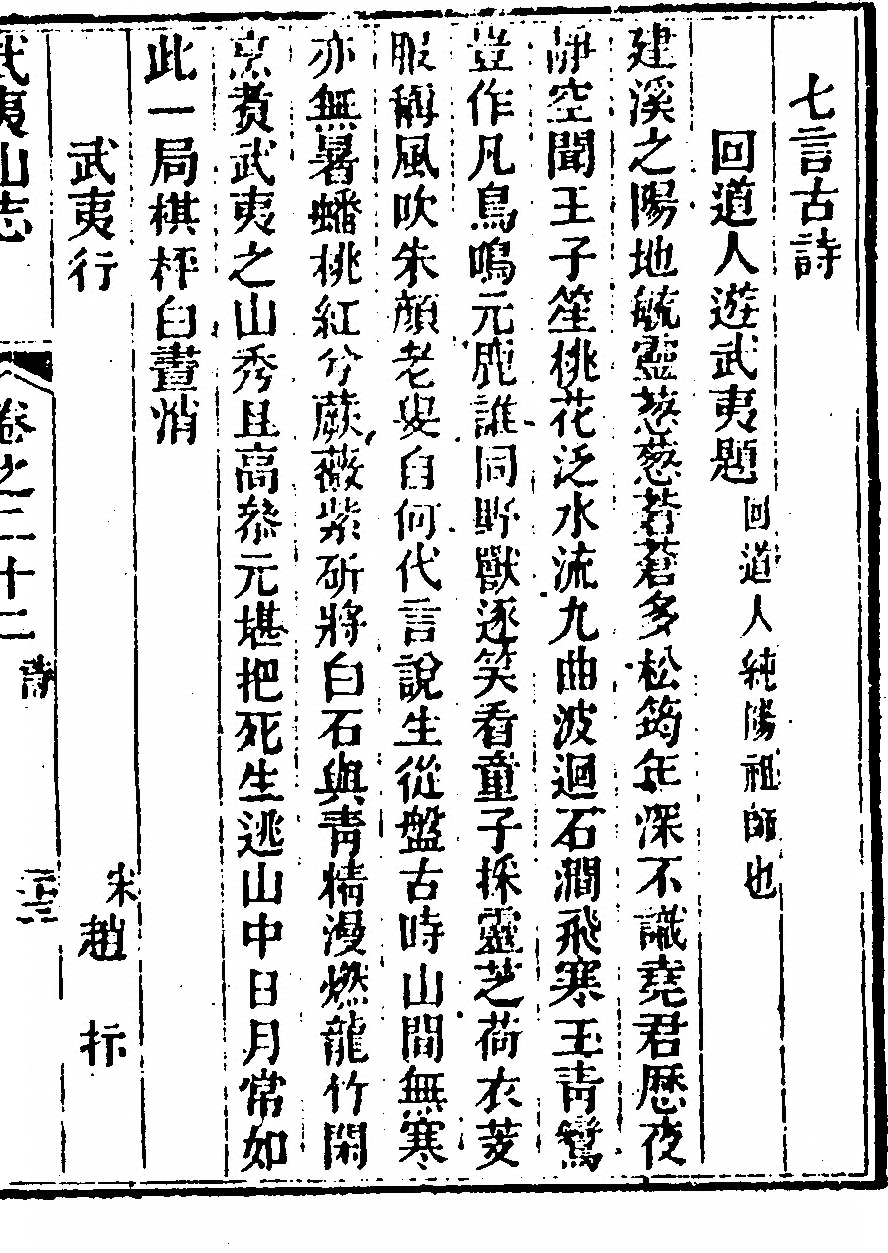 七言古詩
回道人遊武夷題 回道人純陽祖師也
建溪之陽地毓靈葱葱蒼蒼多松筠年深不識堯君曆夜
靜空聞王子笙桃花泛水流九曲波迴石澗飛寒玉青鸞
豈作凡鳥鳴元鹿誰同野獸逐笑看童子採靈芝荷衣芰
服稱風吹朱顏老叟自何代言說生從盤古時山間無寒
亦無暑蟠桃紅分蕨薇紫斫將白石與青精漫燃龍竹閑
烹煑武夷之山秀且高叅元堪把死生逃山中日月常如
此一局棋枰白晝消
武夷行 宋趙 
武夷山志 卷之二十二 詩